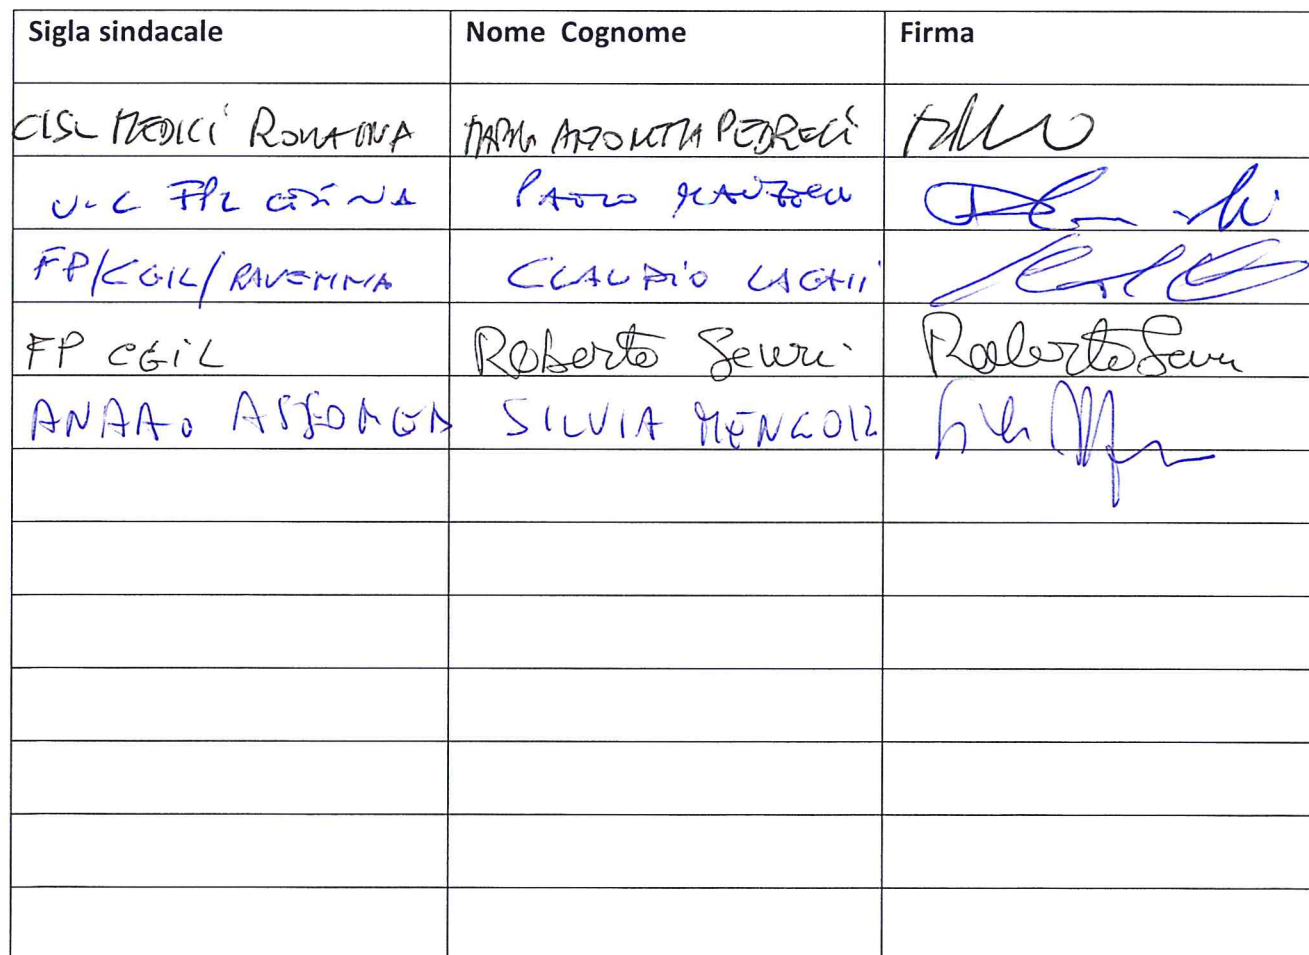 Sigla sindacale Nome Cognome Firma
CISL MEDICI ROMAGNA MARIA ANTONIETTA PEDRELLI
FPL PAOLO MANZELLI
FP/CGIL/RAVENNA CLAUDIO LAGHI
FP CGIL Roberto Severi Roberto Severi
ANAAO ASSOMED SILVIA MENGOZZI